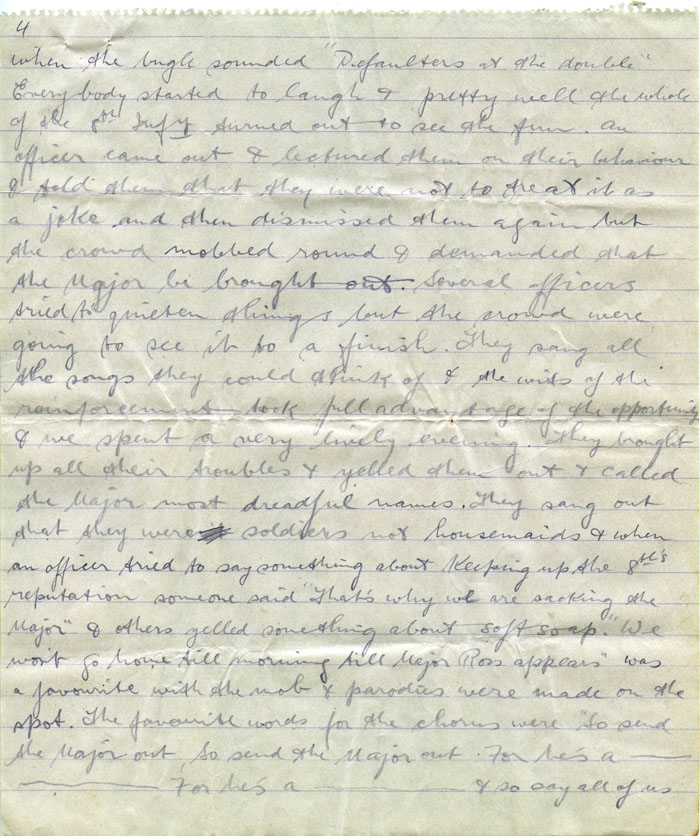 4
when the bugle sounded "Defaulters at the double"
Everybody started to laugh & pretty well the whole
of the 8th Infy turned out to see the fun. An
officer came out & lectured them on their behaviour
& told them that they were not to treat it as
a joke and then dismissed them again but
the crowd mobbed round & demanded that
the Major be brought out. Several officers
tried to quieten things but the crowd were
going to see it to a finish. They sang all
the songs they could think of & the wits of the
reinforcement took full advantage of the opportunity
& we spent a very lively evening. They brought
up all their troubles & yelled them out & called
the Major most dreadful names. They sang out
that they were soldiers not housemaids & when
an officer tried to say something about keeping up the 8th's
reputation someone said "That's why we are sacking the
Major" & others yelled something about soft soap. "We
won't go home till morning till Major Ross appears" was
a favourite with the mob & parodies were made on the
spot. The favourite words for the chorus were "So send
the Major out, So send the Major out. For he's a ——
—————— For he's a —————— & so say all of us